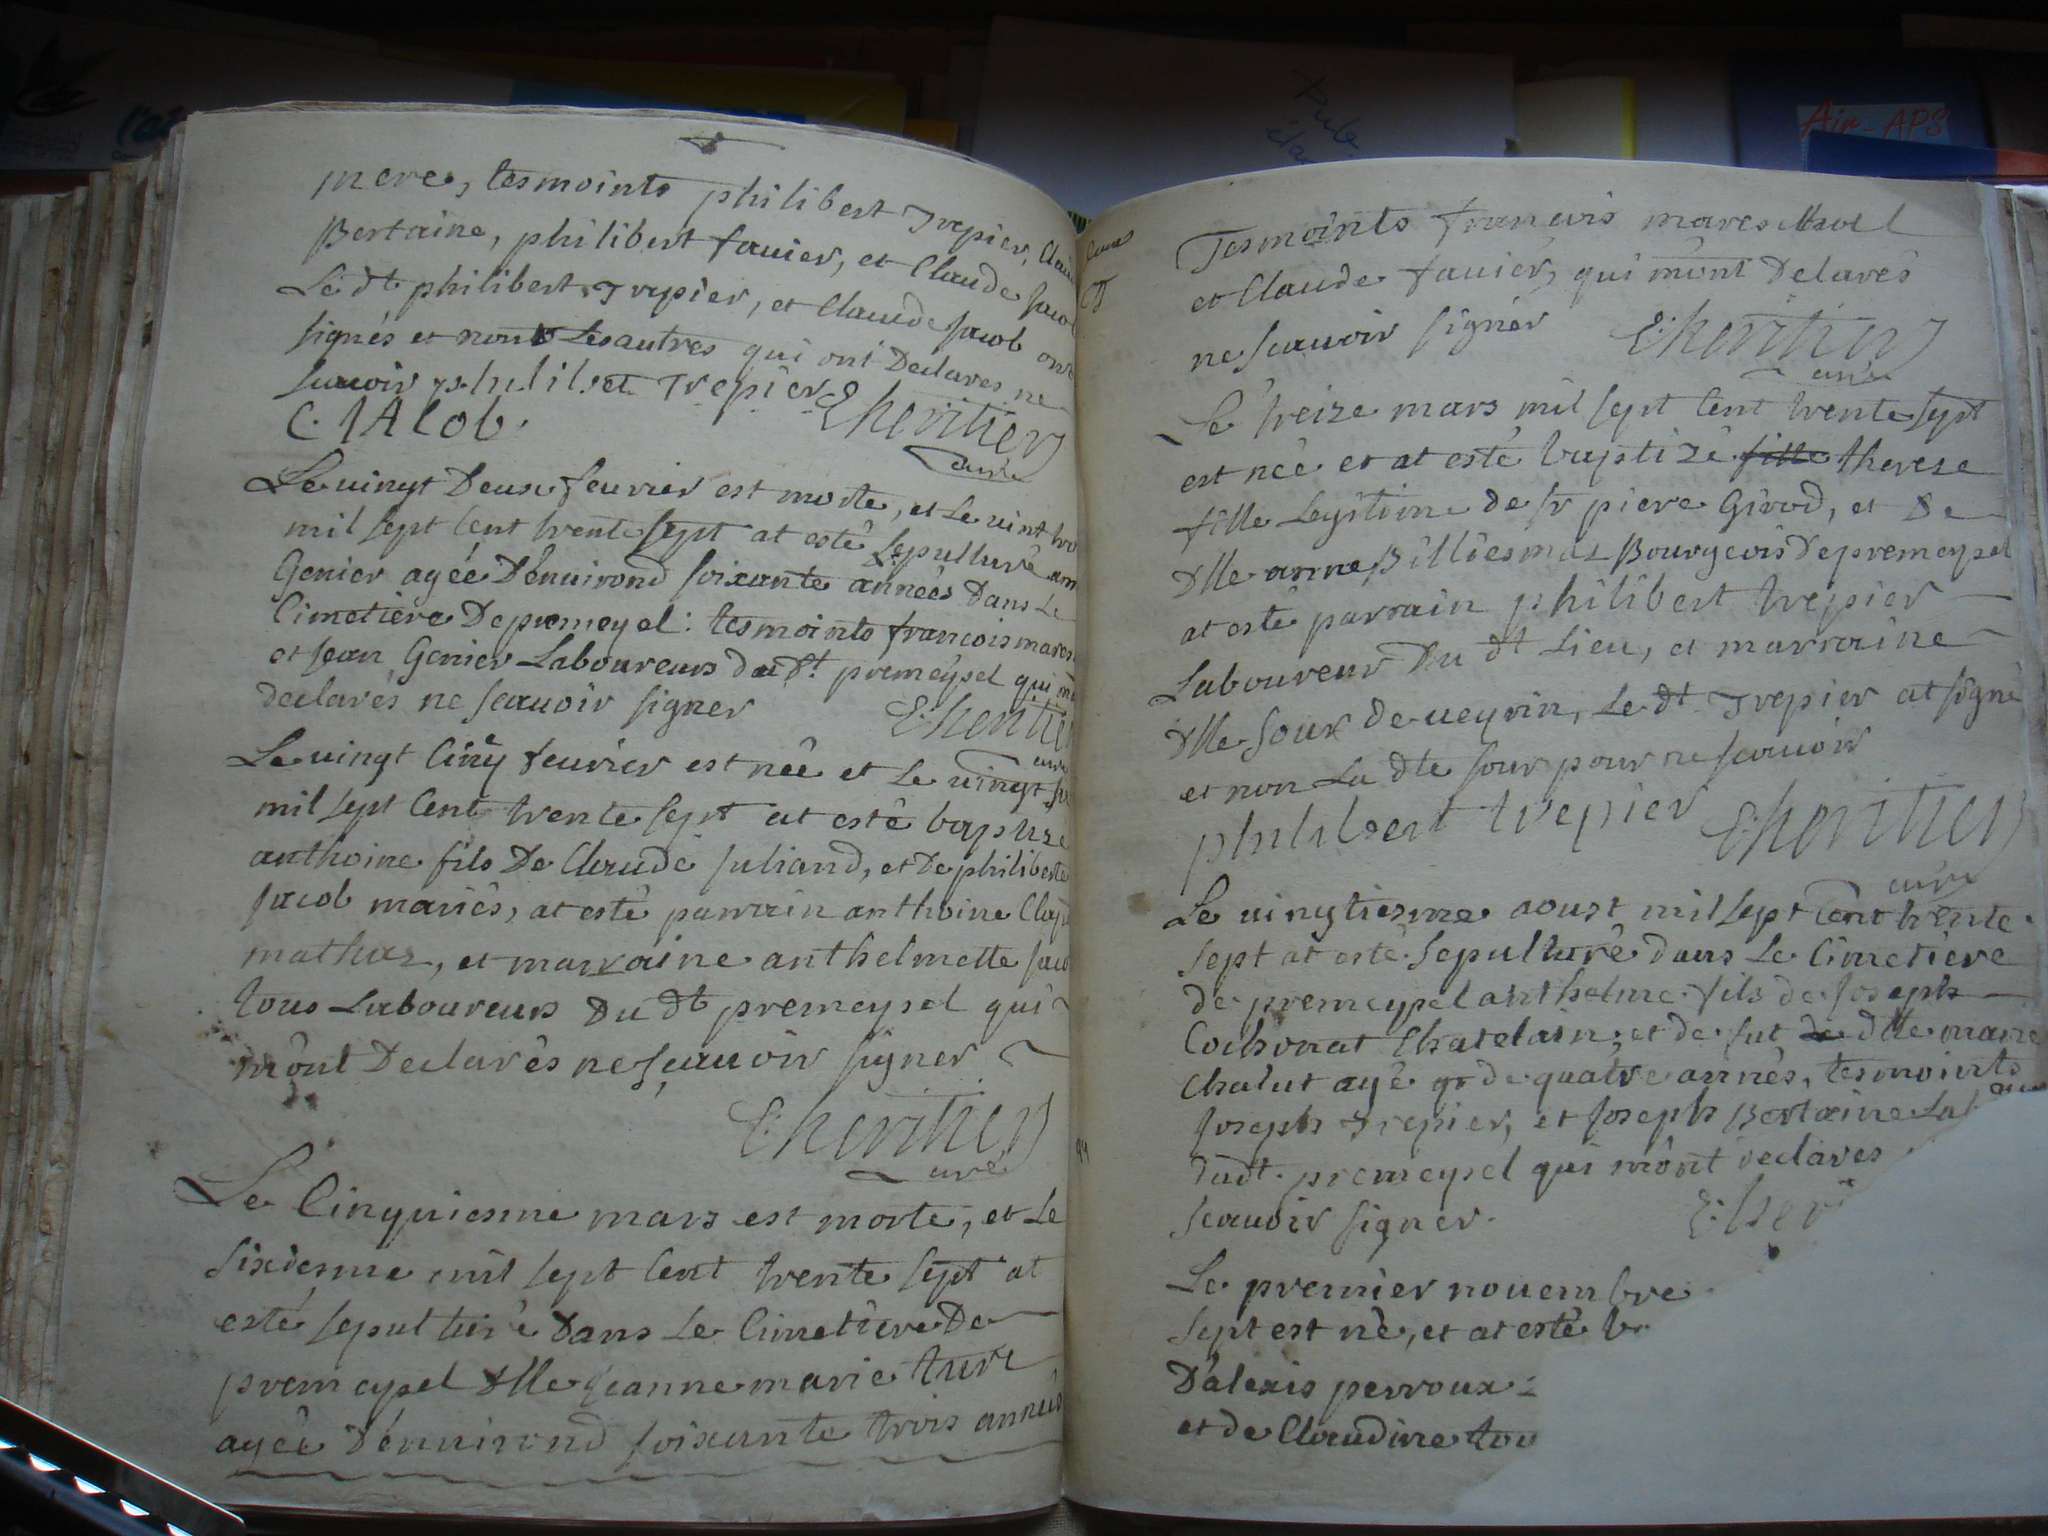 pierre, tesmoints philibert Trepier, Clau
Bertaine, philibert favier, et Claude Jacob
Le dt philibert Trepier, et Claude Jacob ont
signés et non Les autres qui ont Declares ne
scavoir philibert Trepier E: heritier
C. IACob. curé
Le vingt Deux fevrier est morte, et Le vint tro
mil sept Cent trente sept at esté sepulturé ann
Genier agée D'environd soixante années Dans Le
Cimetiere De premeysel: tesmoints francois mares
et Jean Genier Laboureurs du dt. premeysel qui m'
declarés ne scavoir signer E: heritier
curé
Le vingt Cinq fevrier est née et Le vingt si
mil sept Cent trente sept at esté baptize
anthoine fils De Claude Juliand, et De philiberte
Jacob mariés, at esté parrain anthoine Clap
mathiez, et marraine anthelmette Jaco
tous Laboureurs Du dt premeysel qui
m'ont Declarés ne sçavoir signer
E: heritier
curé
Le Cinquiesme mars est morte, et Le
sixiesme mil sept Cent trente sept at
esté sepulturé Dans Le Cimetiere De
premeysel dlle jeanne marie ture
agée D'environd soixante trois années
Tesmoints francois mareschal
et Claude favier, qui m'ont Delarés
ne scavoir signer E: heritier
curé
Le treize mars mil sept Cent trente sept
est née et at esté baptizé fille therese
fille Legitime de sr piere Girod, et De
dlle anne Billiesmaz Bourgeois De premeysel
at esté parrain philibert trepier
Laboureur Du dt Lieu, et marraine
dlle soux de veyrin, Le dt Trepier at signé
et non La dte sour pour ne scavoir
philibert trepier E: heritier
curé
Le vingtiesme aoust mil sept Cent trente
sept at esté sepulturé dans Le Cimetiere
de premeysel anthelme fils de Joseph
Cochonat Chatelain; et de fut de dlle marie
Chalut agé de quatre annés, tesmoints
Joseph Trepier, et Joseph Bertaine Lab
dudt. premeysel qui m'ont declares
scavoir signer. E: heri
Le premier novembre
sept est né, et at esté b
D'alexis perroux
et de Claudine tou
Air-APS